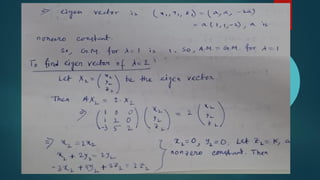 ⇒ eigen vector is (x₁, y₁, z₁) = (a, a, -2a)
= a(1, 1, -2), a is
nonzero constant.
So, G.M. for λ=1 is 1. So, A.M = G.M. for λ=1
To find eigen vector of λ=2 :
Let X₂ = (x₂ y₂ z₂) be the eigen vector.
Then AX₂ = 2·X₂
⇒ (1 0 0, 1 2 0, -3 5 2) (x₂ y₂ z₂) = 2 (x₂ y₂ z₂)
⇒ x₂ = 2x₂
x₂ + 2y₂ = 2y₂
-3x₂ + 5y₂ + 2z₂ = 2z₂
x₂=0, y₂=0. Let z₂ = K, a
nonzero constant. Then